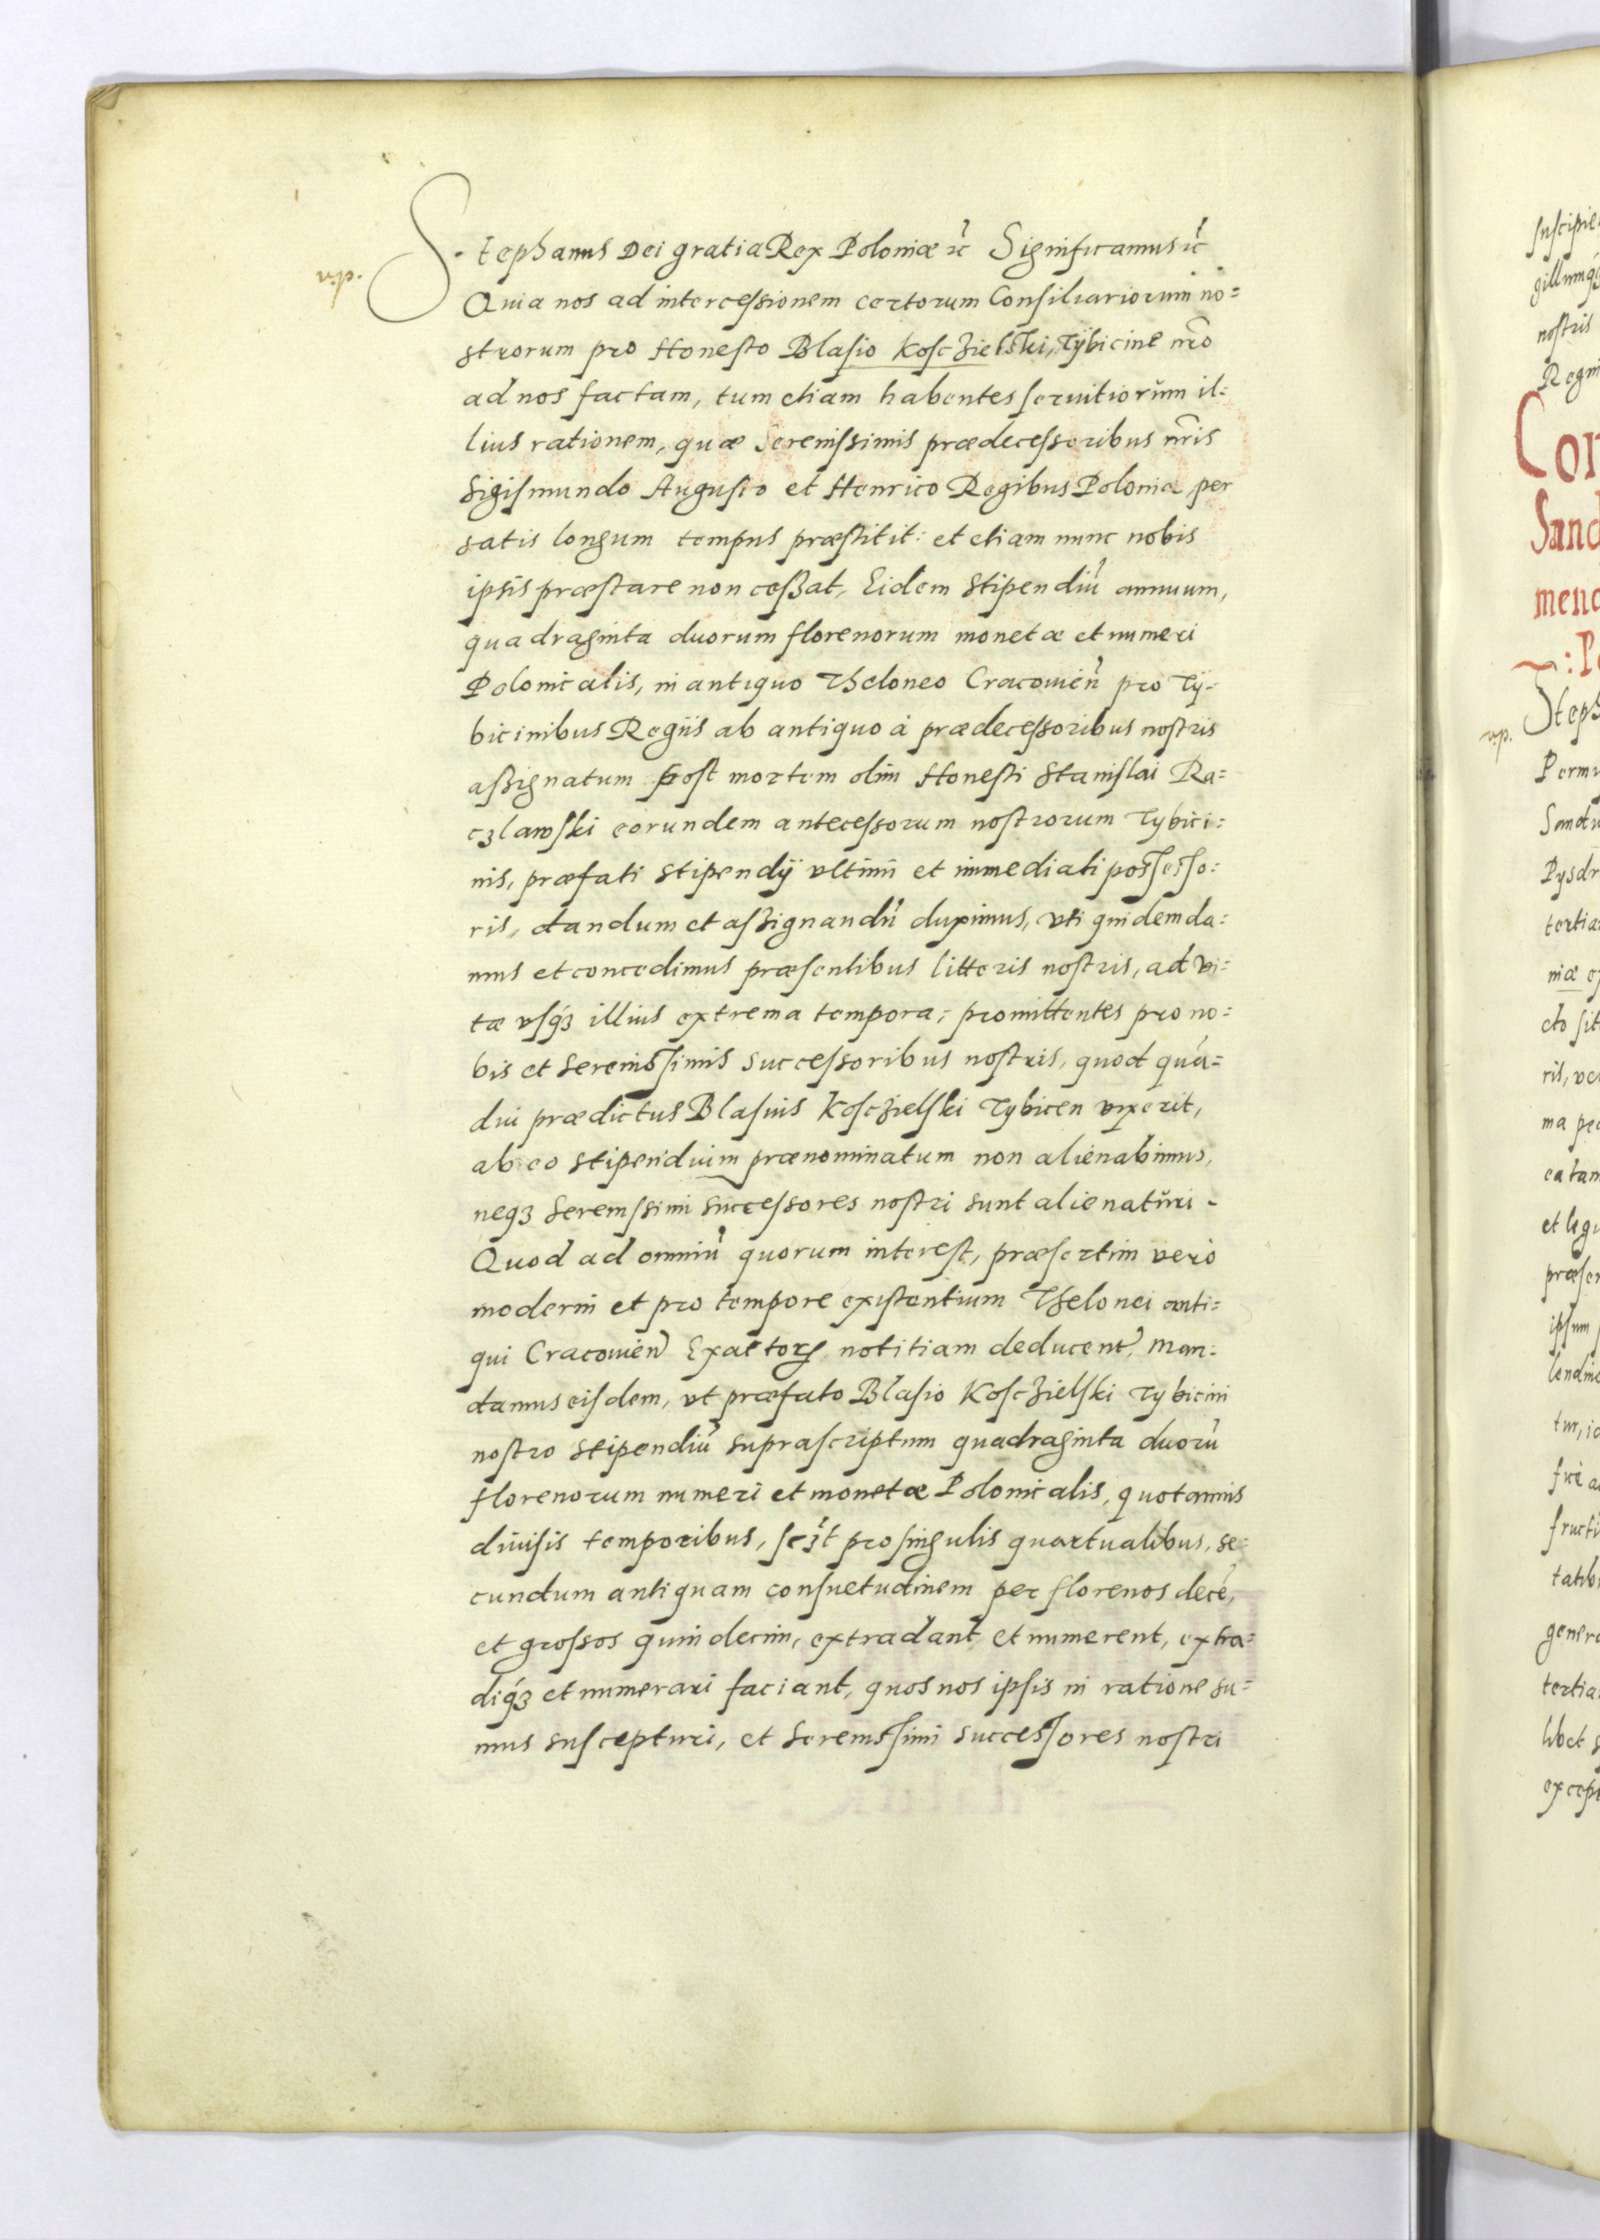 Stephanus Dei gratia Rex Poloniæ &c̃ Significamus &c̃
v.p.
Quia nos ad intercessionem certorum Consiliariorum no=
strorum pro Honesto Blasio Koscźielski, Tÿbicine nr̃o
ad nos factam, tum etiam habentes seruitiorum il=
lius rationem, quæ Serenissimis prædecessoribus nr̃is
Sigismundo Augusto et Henrico Regibus Poloniæ, per
satis longum tempus præstitit: et etiam nunc nobis
ipsis præstare non ceßat, Eidem Stipendiũ annuum,
quadraginta duorum florenorum monetæ et numeri
Polonicalis, in antiquo Theloneo Cracouieñ pro Tÿ=
bicinibus Regiis ab antiquo à prædecessoribus nostris
aßignatum post mortem olim Honesti Stanislai Ra=
czlawski eorundem antecessorum nostrorum Tybici=
nis, præfati Stipendÿ vltimi et immediati possesso=
ris, dandum et aßignandũ duximus, vti quidem da=
mus et concedimus præsentibus litteris nostris, ad vi=
tæ vsq́ꝫ illius extrema tempora; promittentes pro no=
bis et Serenissimis successoribus nostris, quod quá=
diu prædictus Blasius Koscźielski Tybicen vixerit,
ab eo stipendium prænominatum non alienabimus,
neqꝫ Serenissimi successores nostri sunt alienaturi.
Quod ad omniũ quorum interest, præsertim vero
moderni et pro tempore existentium Thelonei anti=
qui Cracouieñ Exactorꝫ notitiam deducent̃, Man=
damus eisdem, vt præfato Blasio Koscźielski Tybicini
nostro stipendiũ suprascriptum quadraginta duorũ
florenorum numeri et monetæ Polonicalis, quotannis
diuisis temporibus, scꝫ̃t pro singulis quartualibus, se=
cundum antiquam consuetudinem per florenos decẽ,
et grossos quindecim, extradant et numerent, extra=
diq́ꝫ et numerari faciant, quos nos ipsis in ratione su=
mus suscepturi, et Serenissimi successores nostri
suscipie
gillumq́ꝫ
nostris
Regni
Con
Sand
mend
Steph
v.p.
Permi
Pysdr
tertia
niæ ex
cto sit
ma pec
ea tam
et legi
præsen
ipsum
tur, id
fructi
tatib
genera
tertia
libet s
excep